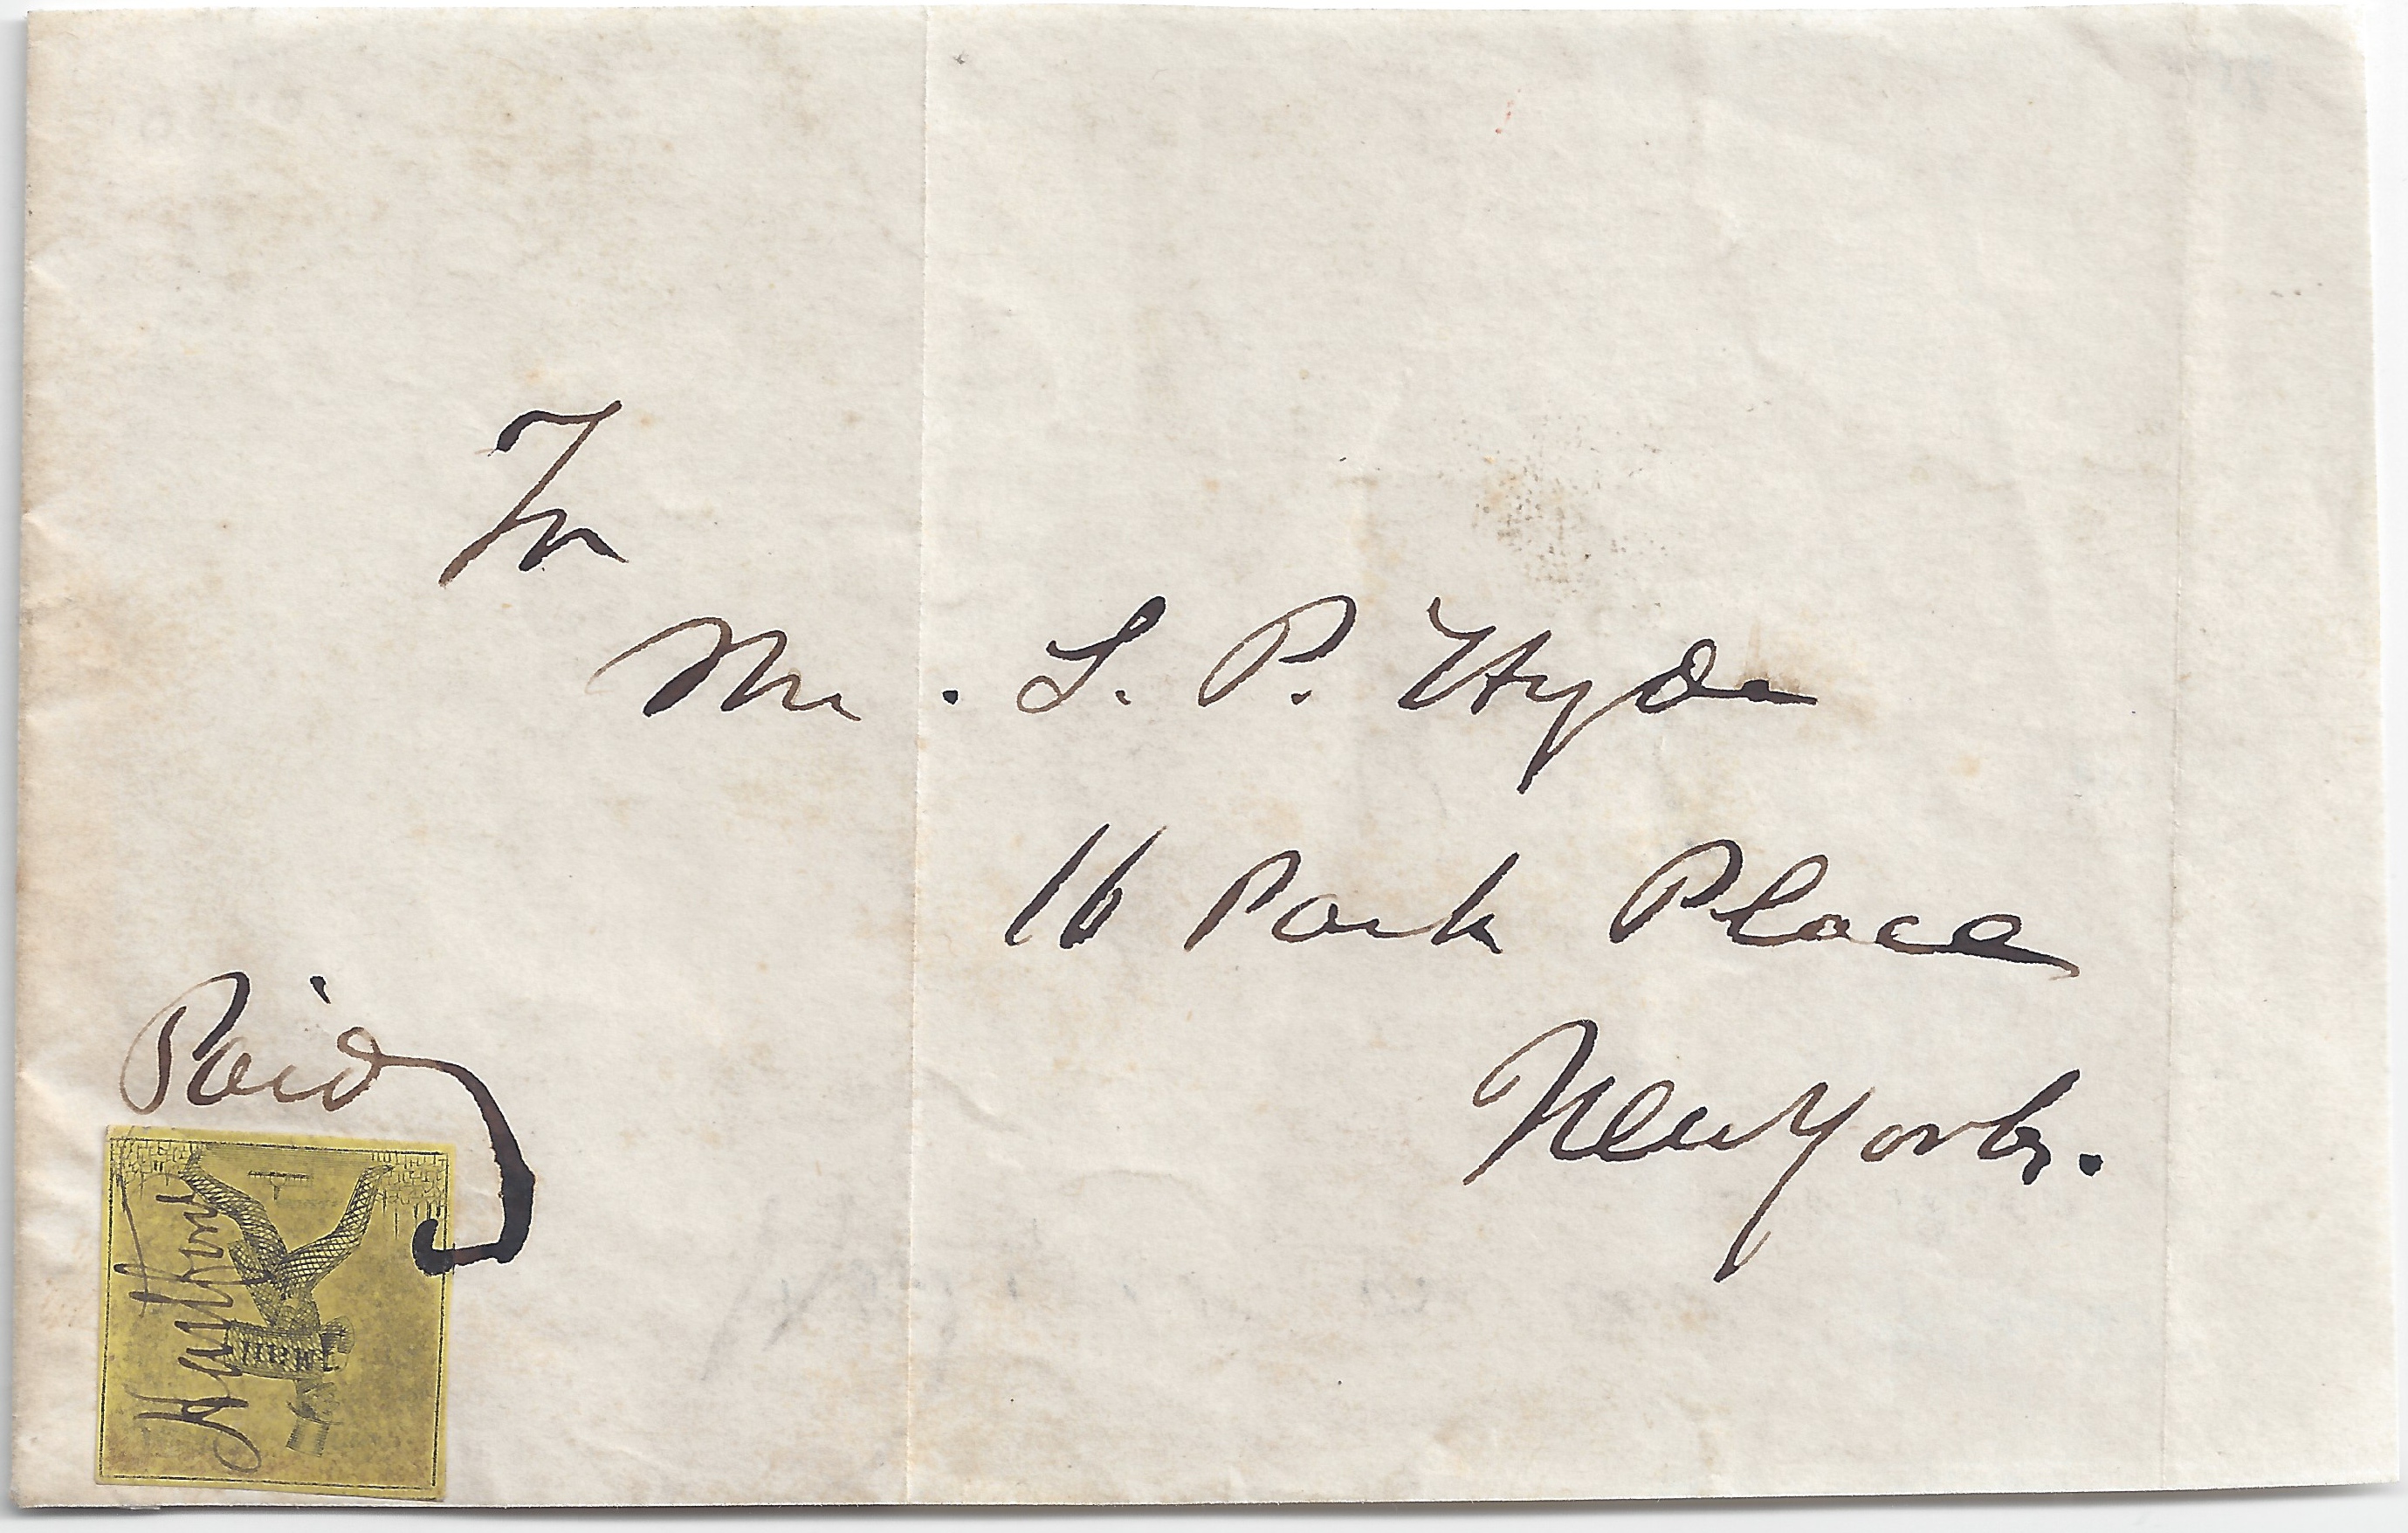 To
Mr. L. P. Hyde
16 Park Place
New York.
Paid